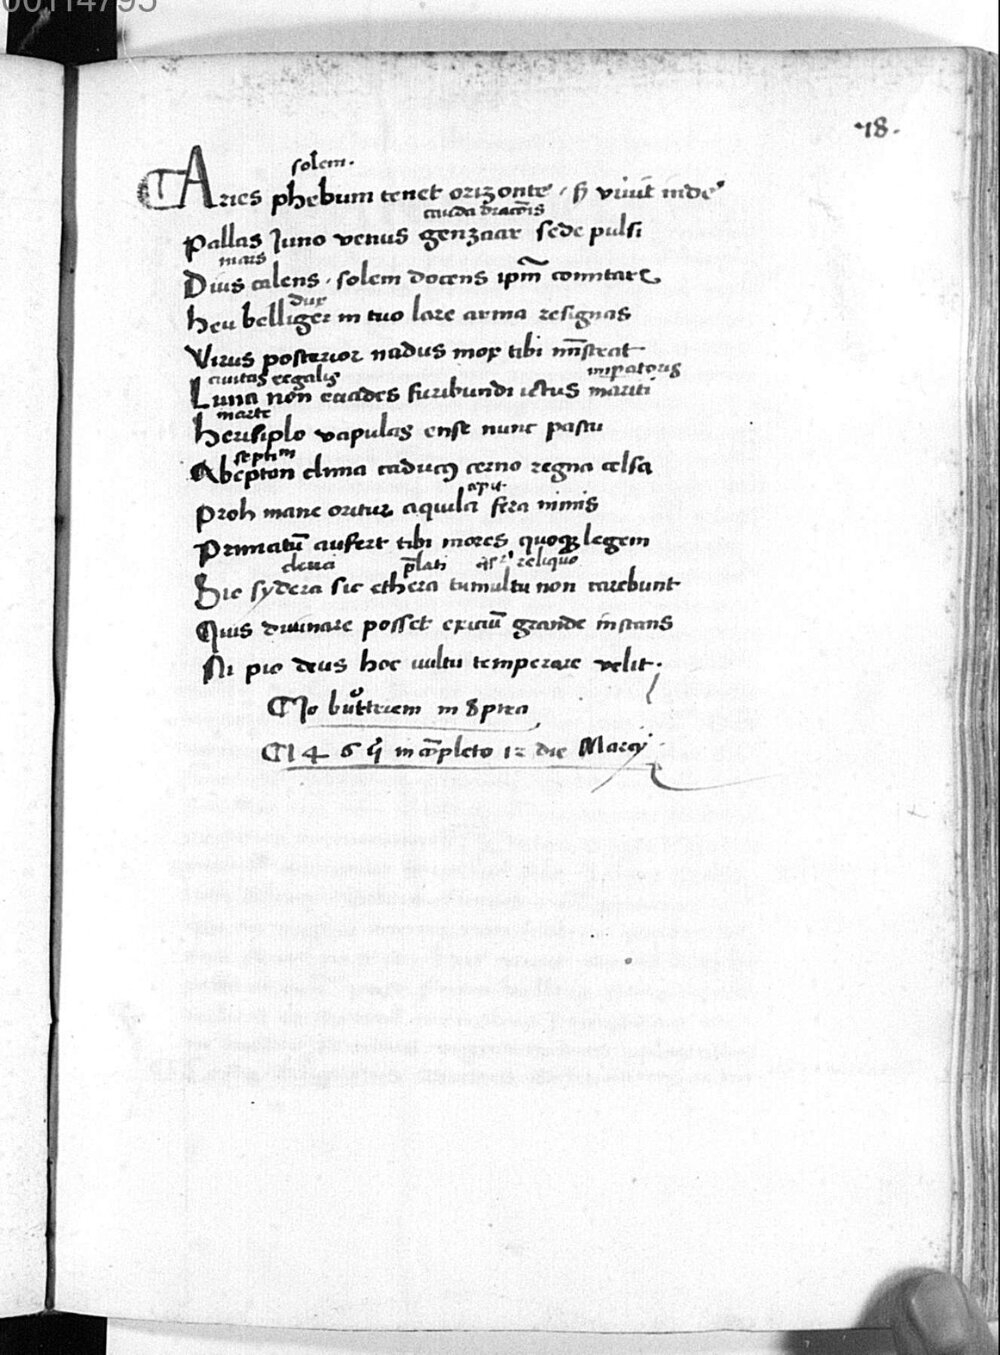 00114795
78.
solem.
Aries phebum tenet orizonte
cauda draconis
Pallas Juno venus genzaar sede pulsi
mars
Dius calens . solem docens ipm comitare
dux
heu belliger in tuo lare arma resignas
Virus posterior nadus mox tibi
civitas regalis imperatoris
Luna non evades furibundi ictus mariti
marte
vapulas ense nunc pastu
septim
clima cerno regna celsa
apit
Proh mane oritur aquila fera nimis
Primatu aufert tibi mores quoque legem
cleri plati reliquo
Sic sydera sic ethera tumultu non carebunt
Quis divinare posset exiciu grande instans
Ni pio deus hoc vultu temperare velit.
Jo in
146 in completo 12 die Marcy